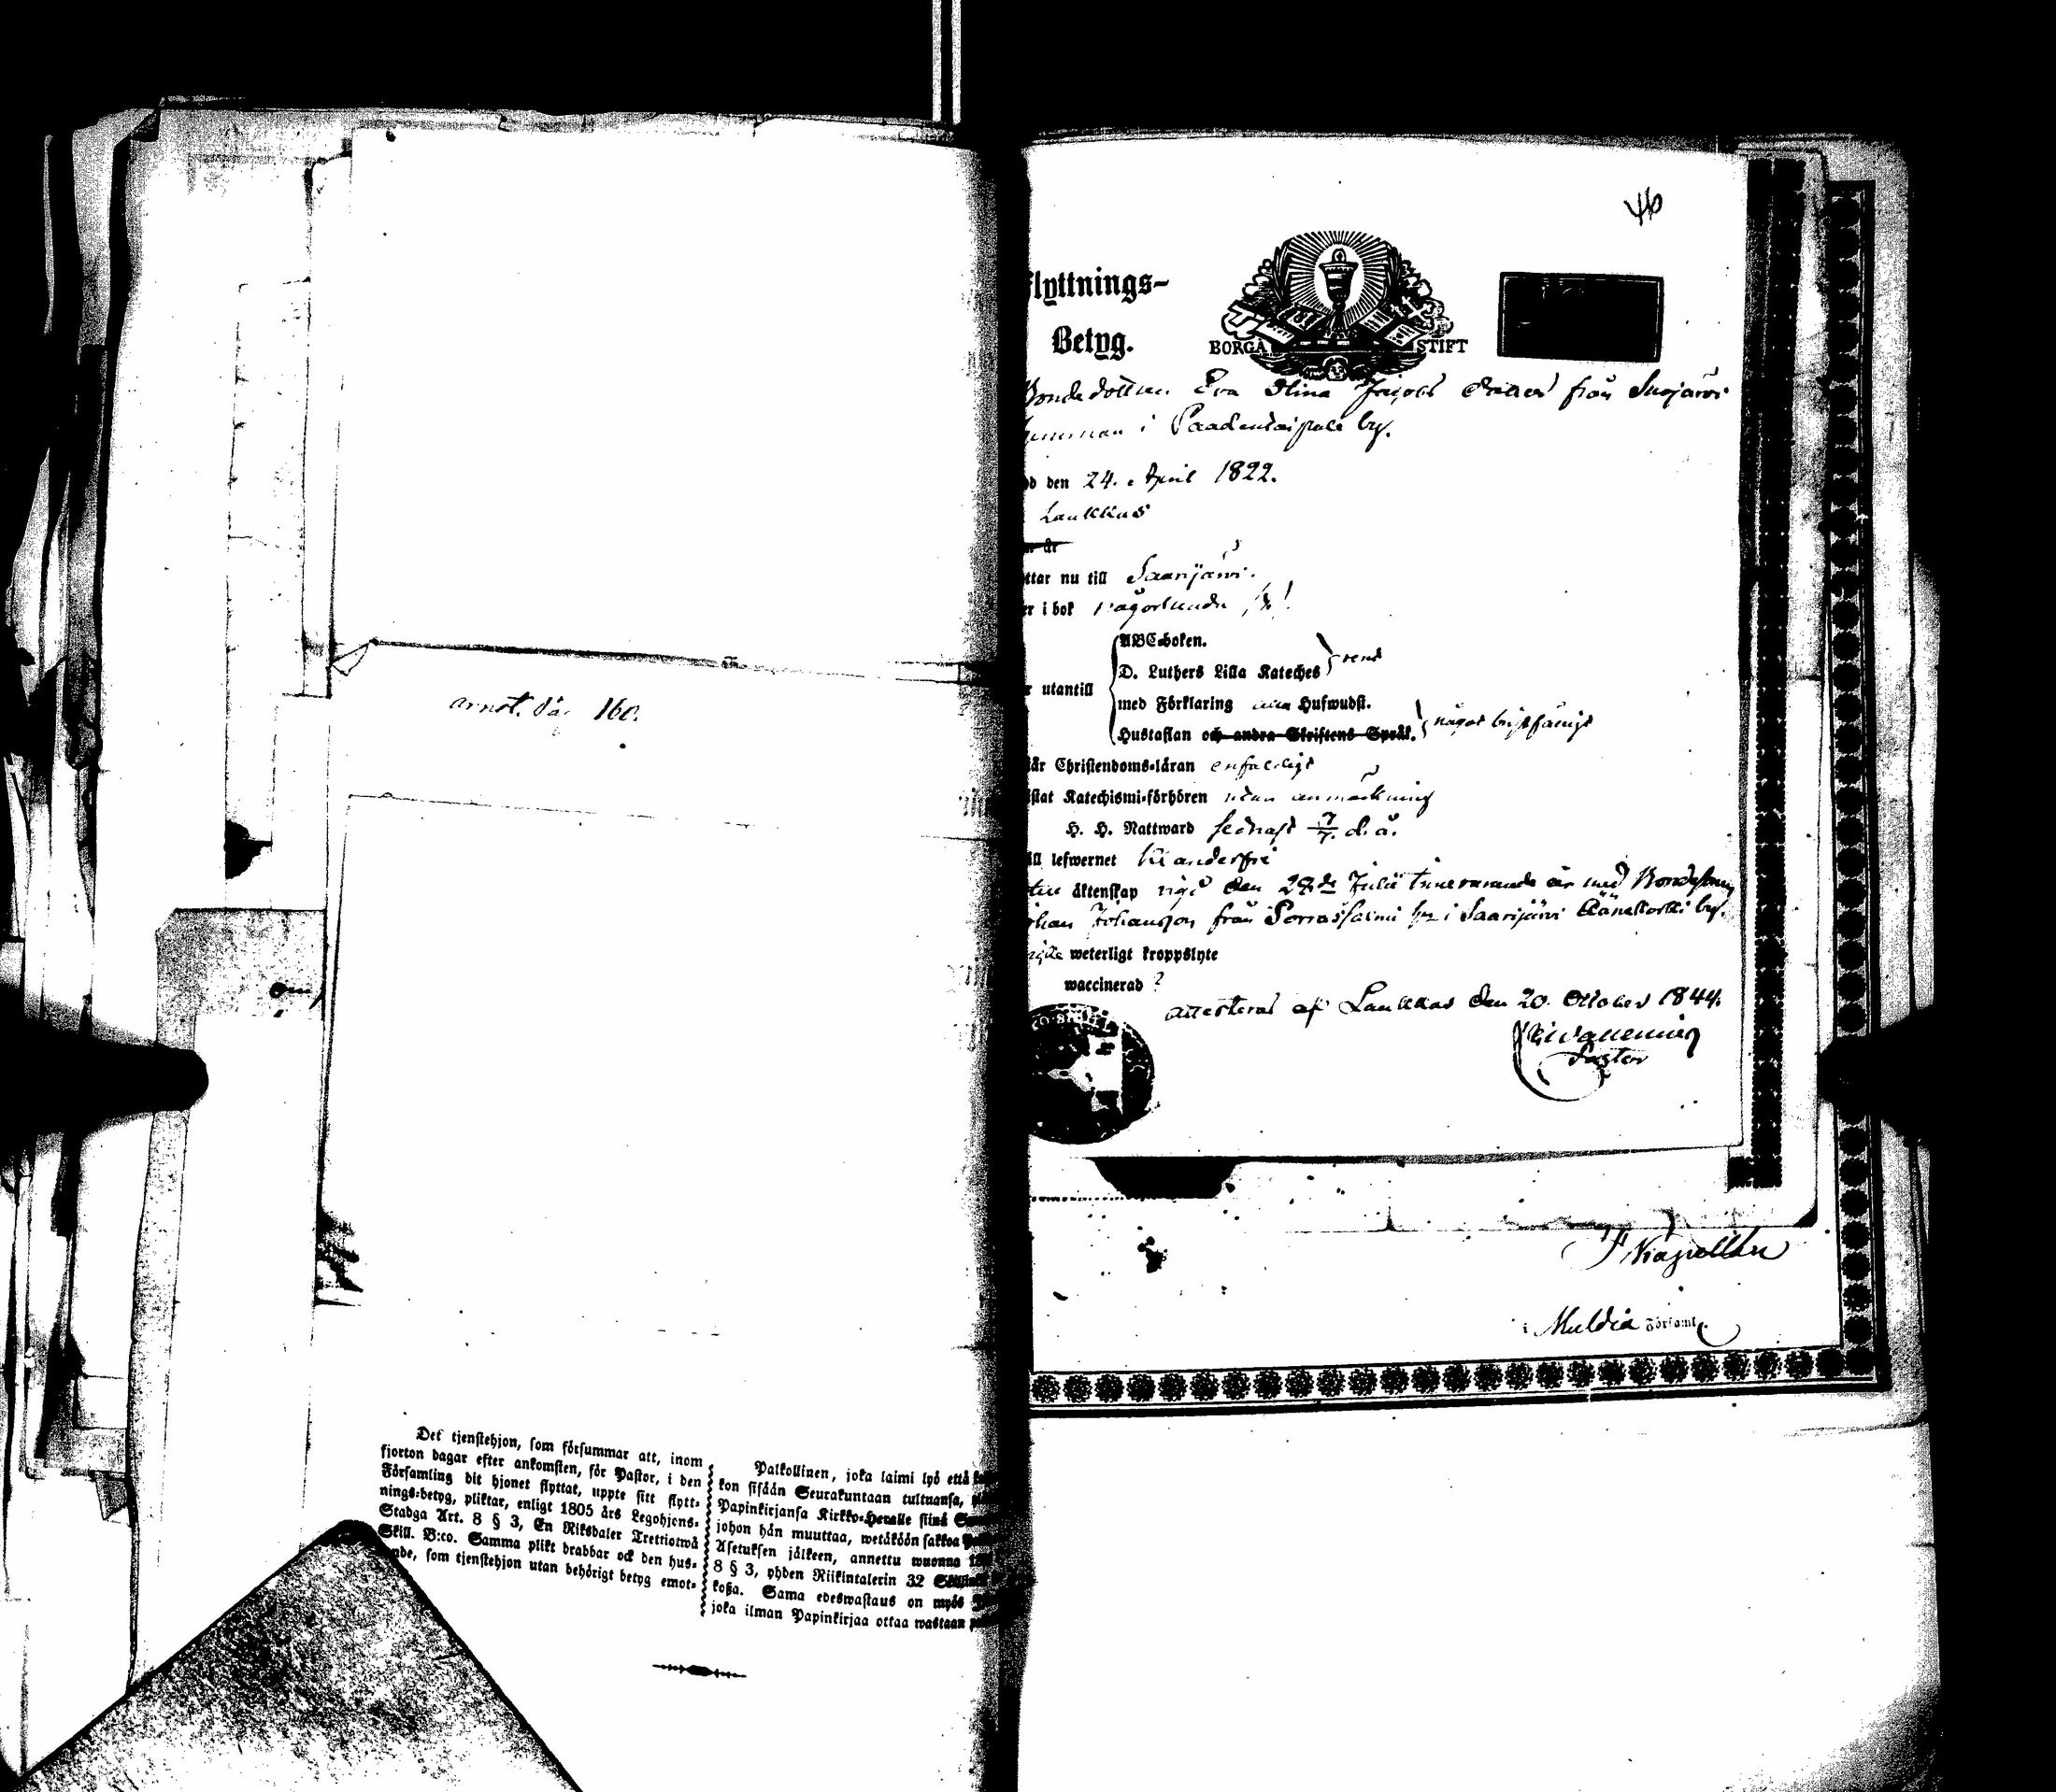 annot. pag. 160.
Det tjenstehjon, som försummar att, inom
fjorton dagar efter ankomsten, för Pastor, i den
Församling dit hjonet flyttat, uppte sitt flytt-
nings-betyg, pliktar, enligt 1805 års Legohjons-
Stadga Art. 8 § 3, En Riksdaler Trettiotwå
Skill. B:co. Samma plikt drabbar ock den hus-
bonde, som tjenstehjon utan behörigt betyg emot-
Palkollinen, joka laimi lyö että
kon sisään Seurakuntaan tultuansa,
Papinkirjansa Kirkko-Herralle siinä
johon hän muuttaa, wetäköön sakkoa
Asetuksen jälkeen, annettu wuonna
8 § 3, yhden Riikintalerin 32
koßa. Sama edeswastaus on myös
joka ilman Papinkirjaa ottaa wastaan
46
Flyttnings-
Betyg.
BORGÅ STIFT
Bondedottren Eva Stina Jacobs dotter från Suojärvi
hemman i Paadentaipale by.
den 24. April 1822.
Laukkas
ttar nu till Saarijärvi.
er i bok någorlunda
ABC-boken.
D. Luthers Lilla Kateches rent
utantill
med Förklaring Hufwudst.
Hustaflan och andra Skriftens Språk. något bristfäligt
Christendoms-läran enfaldigt
istat Katechismi-förhören utan anmärkning
H. H. Nattward sednast 7/7 d. å.
ill lefwernet klanderfri
äktenskap vigd den 28de Julii innevarande år med Bondeson
Johan Johansson från Porrassalmi hn i Saarijärvi Äänekoski by.
weterligt kroppslyte
waccinerad ?
attesteras af Laukkas den 20. October 1844.
Pastor
i Muldia Församl.